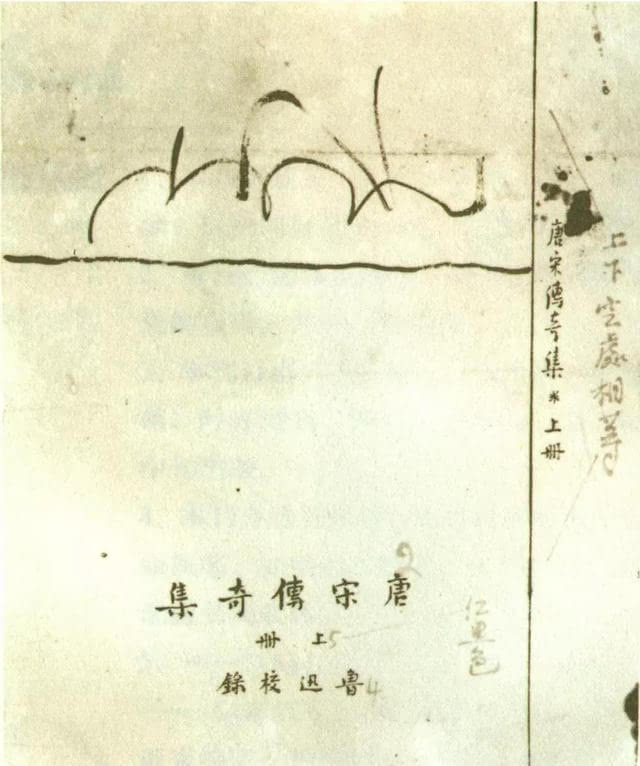 上下空處相等
唐宋傳奇集 * 上冊
唐宋傳奇集 2
上冊 5
魯迅校錄 4
色